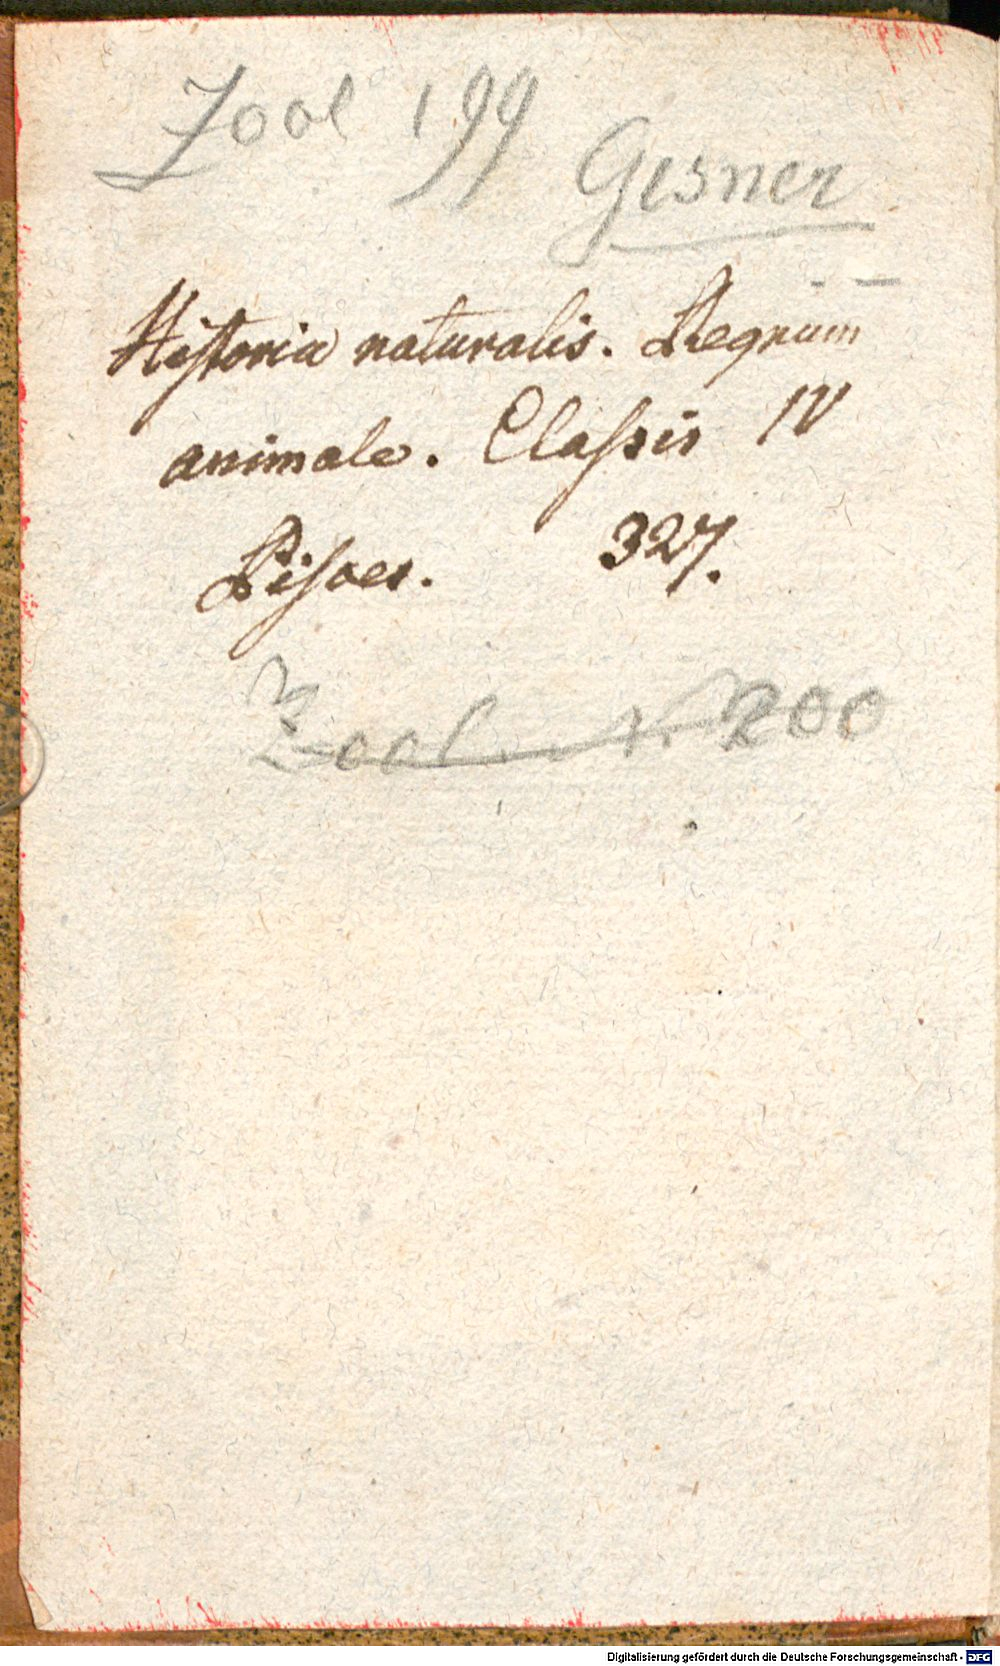 Zool 199
Gesner
Hiſtoria naturalis. Regnum
animale. Claſsis IV
Piſces. 327.
Zool. N. 200
Digitalisierung gefördert durch die Deutsche Forschungsgemeinschaft - DFG